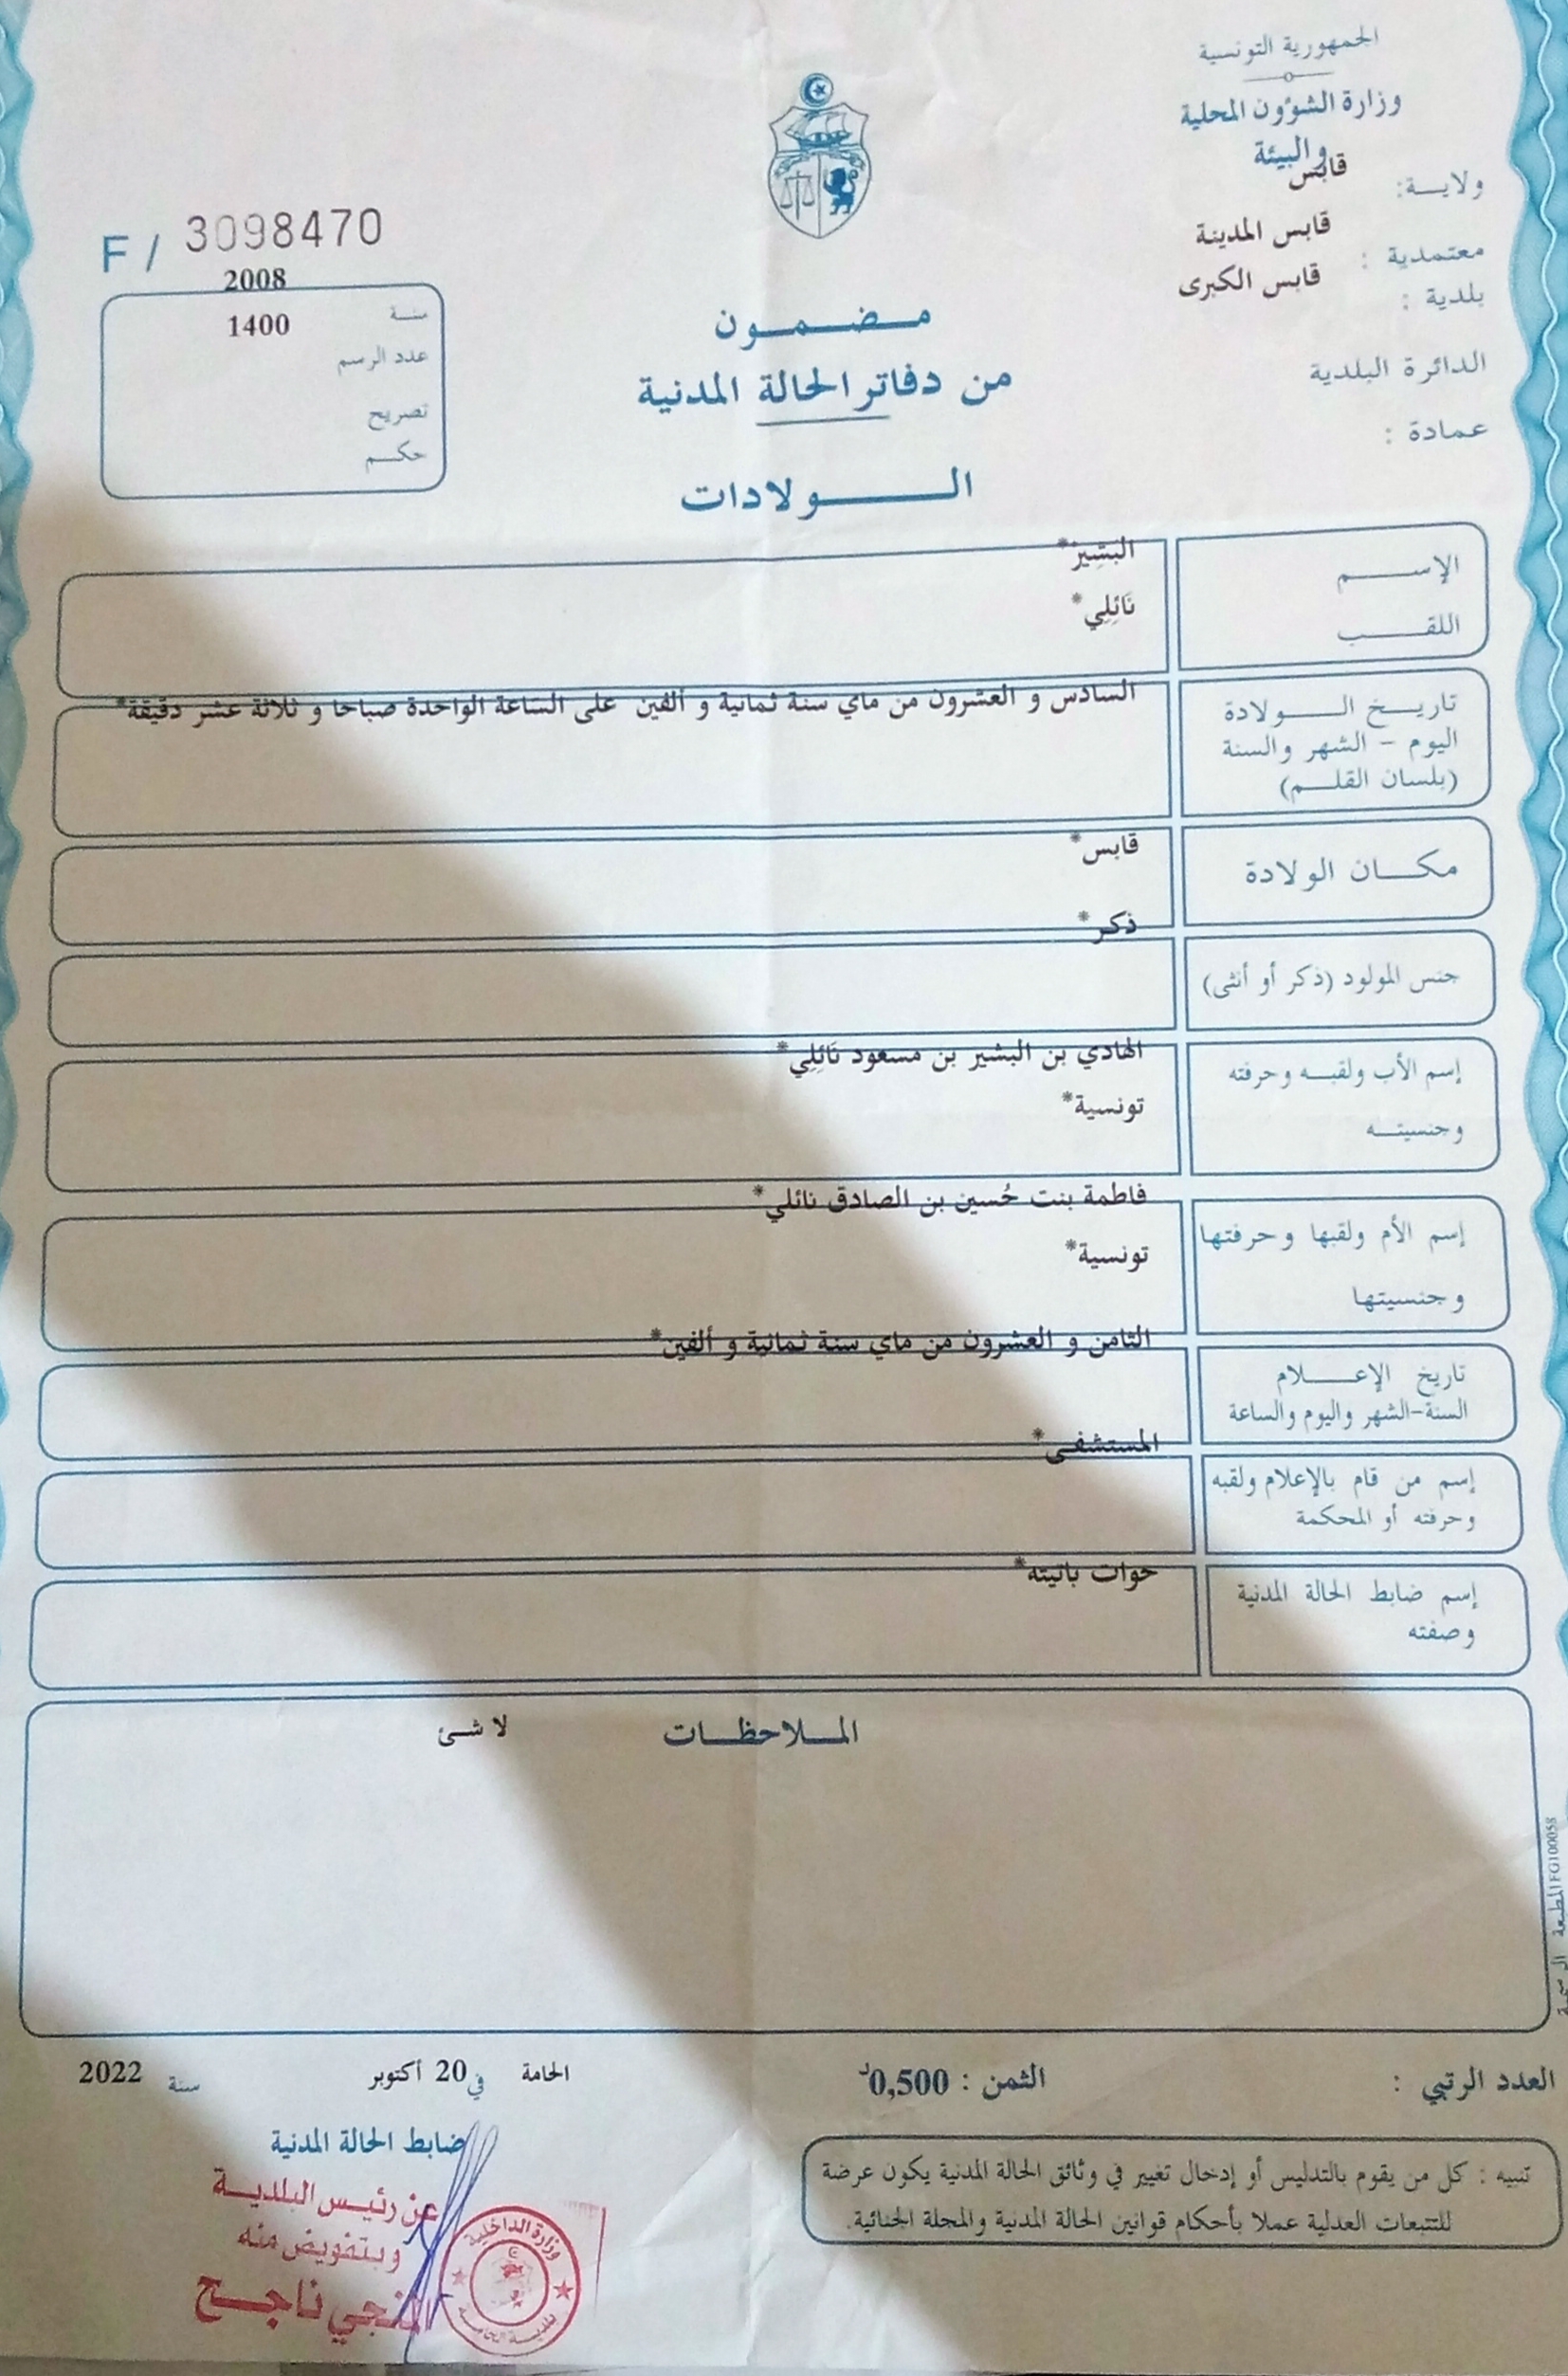 الجمهورية التونسية
وزارة الشؤون المحلية
والبيئة
ولايـــة: قابس
معتمدية : قابس المدينة
بلدية : قابس الكبرى
الدائرة البلدية
عمادة :
F / 3098470
2008
سنـــة
1400
عدد الرسم
تصريح
حكـــم
مـــضـــمـــون
من دفاتر الحالة المدنية
الـــــولادات
الإســـــم البَشِيرْ*
اللقـــــب نَائِلِي*
تاريـــخ الـــــولادة السادس و العشرون من ماي سنة ثمانية و ألفين على الساعة الواحدة صباحا و ثلاثة عشر دقيقة*
اليوم – الشهر والسنة
(بلسان القلـــم)
مكـــان الولادة قابس*
جنس المولود (ذكر أو أنثى) ذكر*
إسم الأب ولقبـه وحرفته الهادي بن البشير بن مسعود نَائِلِي*
وجنسيتـــه تونسية*
إسم الأم ولقبها وحرفتها فاطمة بنت حُسين بن الصادق نائلي*
وجنسيتها تونسية*
تاريخ الإعـــــلام الثامن و العشرون من ماي سنة ثمانية و ألفين*
السنة-الشهر واليوم والساعة
إسم من قام بالإعلام ولقبه المستشفى*
وحرفته أو المحكمة
إسم ضابط الحالة المدنية حوات باتيته*
وصفته
المـــلاحظـــات لا شئ
FG100058 المطبعة الرسمية
العدد الرتبي :
الثمن : 0,500د
الحامة في 20 أكتوبر سنة 2022
ضابط الحالة المدنية
عن رئيس البلديـــة
وبتفويض منه
المنجي ناجـــح
وزارة الداخلية
بلدية الحامة
تنبيه : كل من يقوم بالتدليس أو إدخال تغيير في وثائق الحالة المدنية يكون عرضة
للتتبعات العدلية عملا بأحكام قوانين الحالة المدنية والمجلة الجنائية.